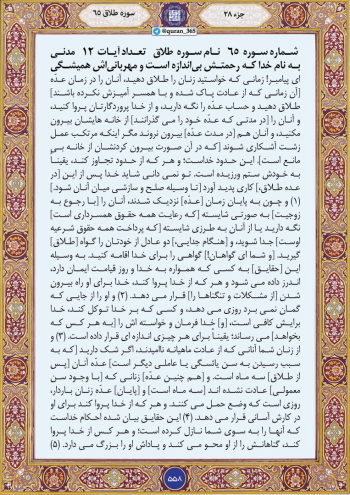 جزء ۲۸
سوره طلاق ۶۵
@quran_365
شماره سوره ۶۵ نام سوره طلاق تعداد آیات ۱۲ مدنی
به نام خدا که رحمتش بی‌اندازه است و مهربانی‌اش همیشگی
ای پیامبر! زمانی که خواستید زنان را طلاق دهید، آنان را در زمان عدّه
[آن زمانی که از عادت پاک شده و با همسر آمیزش نکرده باشند]
طلاق دهید و حساب عدّه را نگه دارید، و از خدا پروردگارتان پروا کنید،
و آنان را [در مدتی که عدّه خود را می گذرانند] از خانه هایشان بیرون
مکنید، و آنان هم [در مدت عدّه] بیرون نروند مگر اینکه مرتکب عمل
زشت آشکاری شوند [که در آن صورت بیرون کردنشان از خانه بی
مانع است]. این حدود خداست؛ و هر که از حدود تجاوز کند، یقیناً
به خودش ستم ورزیده است. تو نمی دانی شاید خدا پس از این [در
عده طلاق،] کاری پدید آورد [تا وسیله صلح و سازشی میان آنان شود.]
(۱) و چون به پایان زمان [عدّه] نزدیک شدند، آنان را [با رجوع به
زوجیت] به صورتی شایسته [که رعایت همه حقوق همسرداری است]
نگه دارید یا از آنان به طرزی شایسته [که پرداخت همه حقوق شرعیه
اوست] جدا شوید، و [هنگام جدایی،] دو عادل از خودتان را گواه [طلاق]
گیرید. [و شما ای گواهان!] گواهی را برای خدا اقامه کنید. به وسیله
این [حقایق] به کسی که همواره به خدا و روز قیامت ایمان دارد،
اندرز داده می شود و هر که از خدا پروا کند، خدا برای او راه بیرون
شدن [از مشکلات و تنگناها را] قرار می دهد. (۲) و او را از جایی که
گمان نمی برد روزی می دهد، و کسی که بر خدا توکل کند، خدا
برایش کافی است، [و] خدا فرمان و خواسته اش را [به هر کس که
بخواهد] می رساند؛ یقیناً برای هر چیزی اندازه ای قرار داده است. (۳) و
از زنان شما آنانی که از عادت ماهیانه ناامیدند، اگر شک دارید [که به
سبب رسیدن به سن یائسگی یا عاملی دیگر است] عدّه آنان [پس
از طلاق] سه ماه است، و [هم چنین عدّه] زنانی که [با وجود سن
معمولی] عادت نشده اند [سه ماه است] و [پایان] عدّه زنان باردار،
روزی است که وضع حمل می کنند. و هر که از خدا پروا کند برای او
در کارش آسانی قرار می دهد. (۴) این [حقایق بیان شده] احکام خداست
که آنها را به سوی شما نازل کرده است؛ و هر کس از خدا پروا
کند، گناهانش را از او محو می کند و پاداش او را بزرگ می دارد. (۵)
۵۵۸